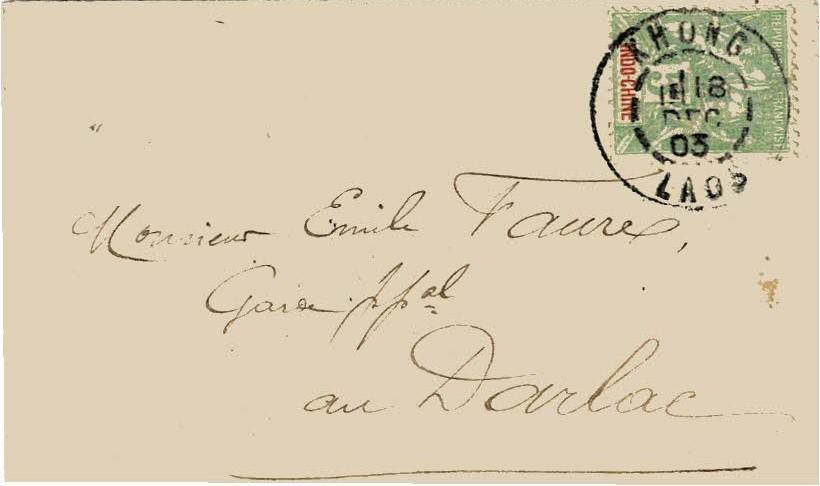 KHONG
1E 18
DEC
03
LAOS
INDO-CHINE
5
Monsieur Emile Faure,
Garde ppal
au Darlac